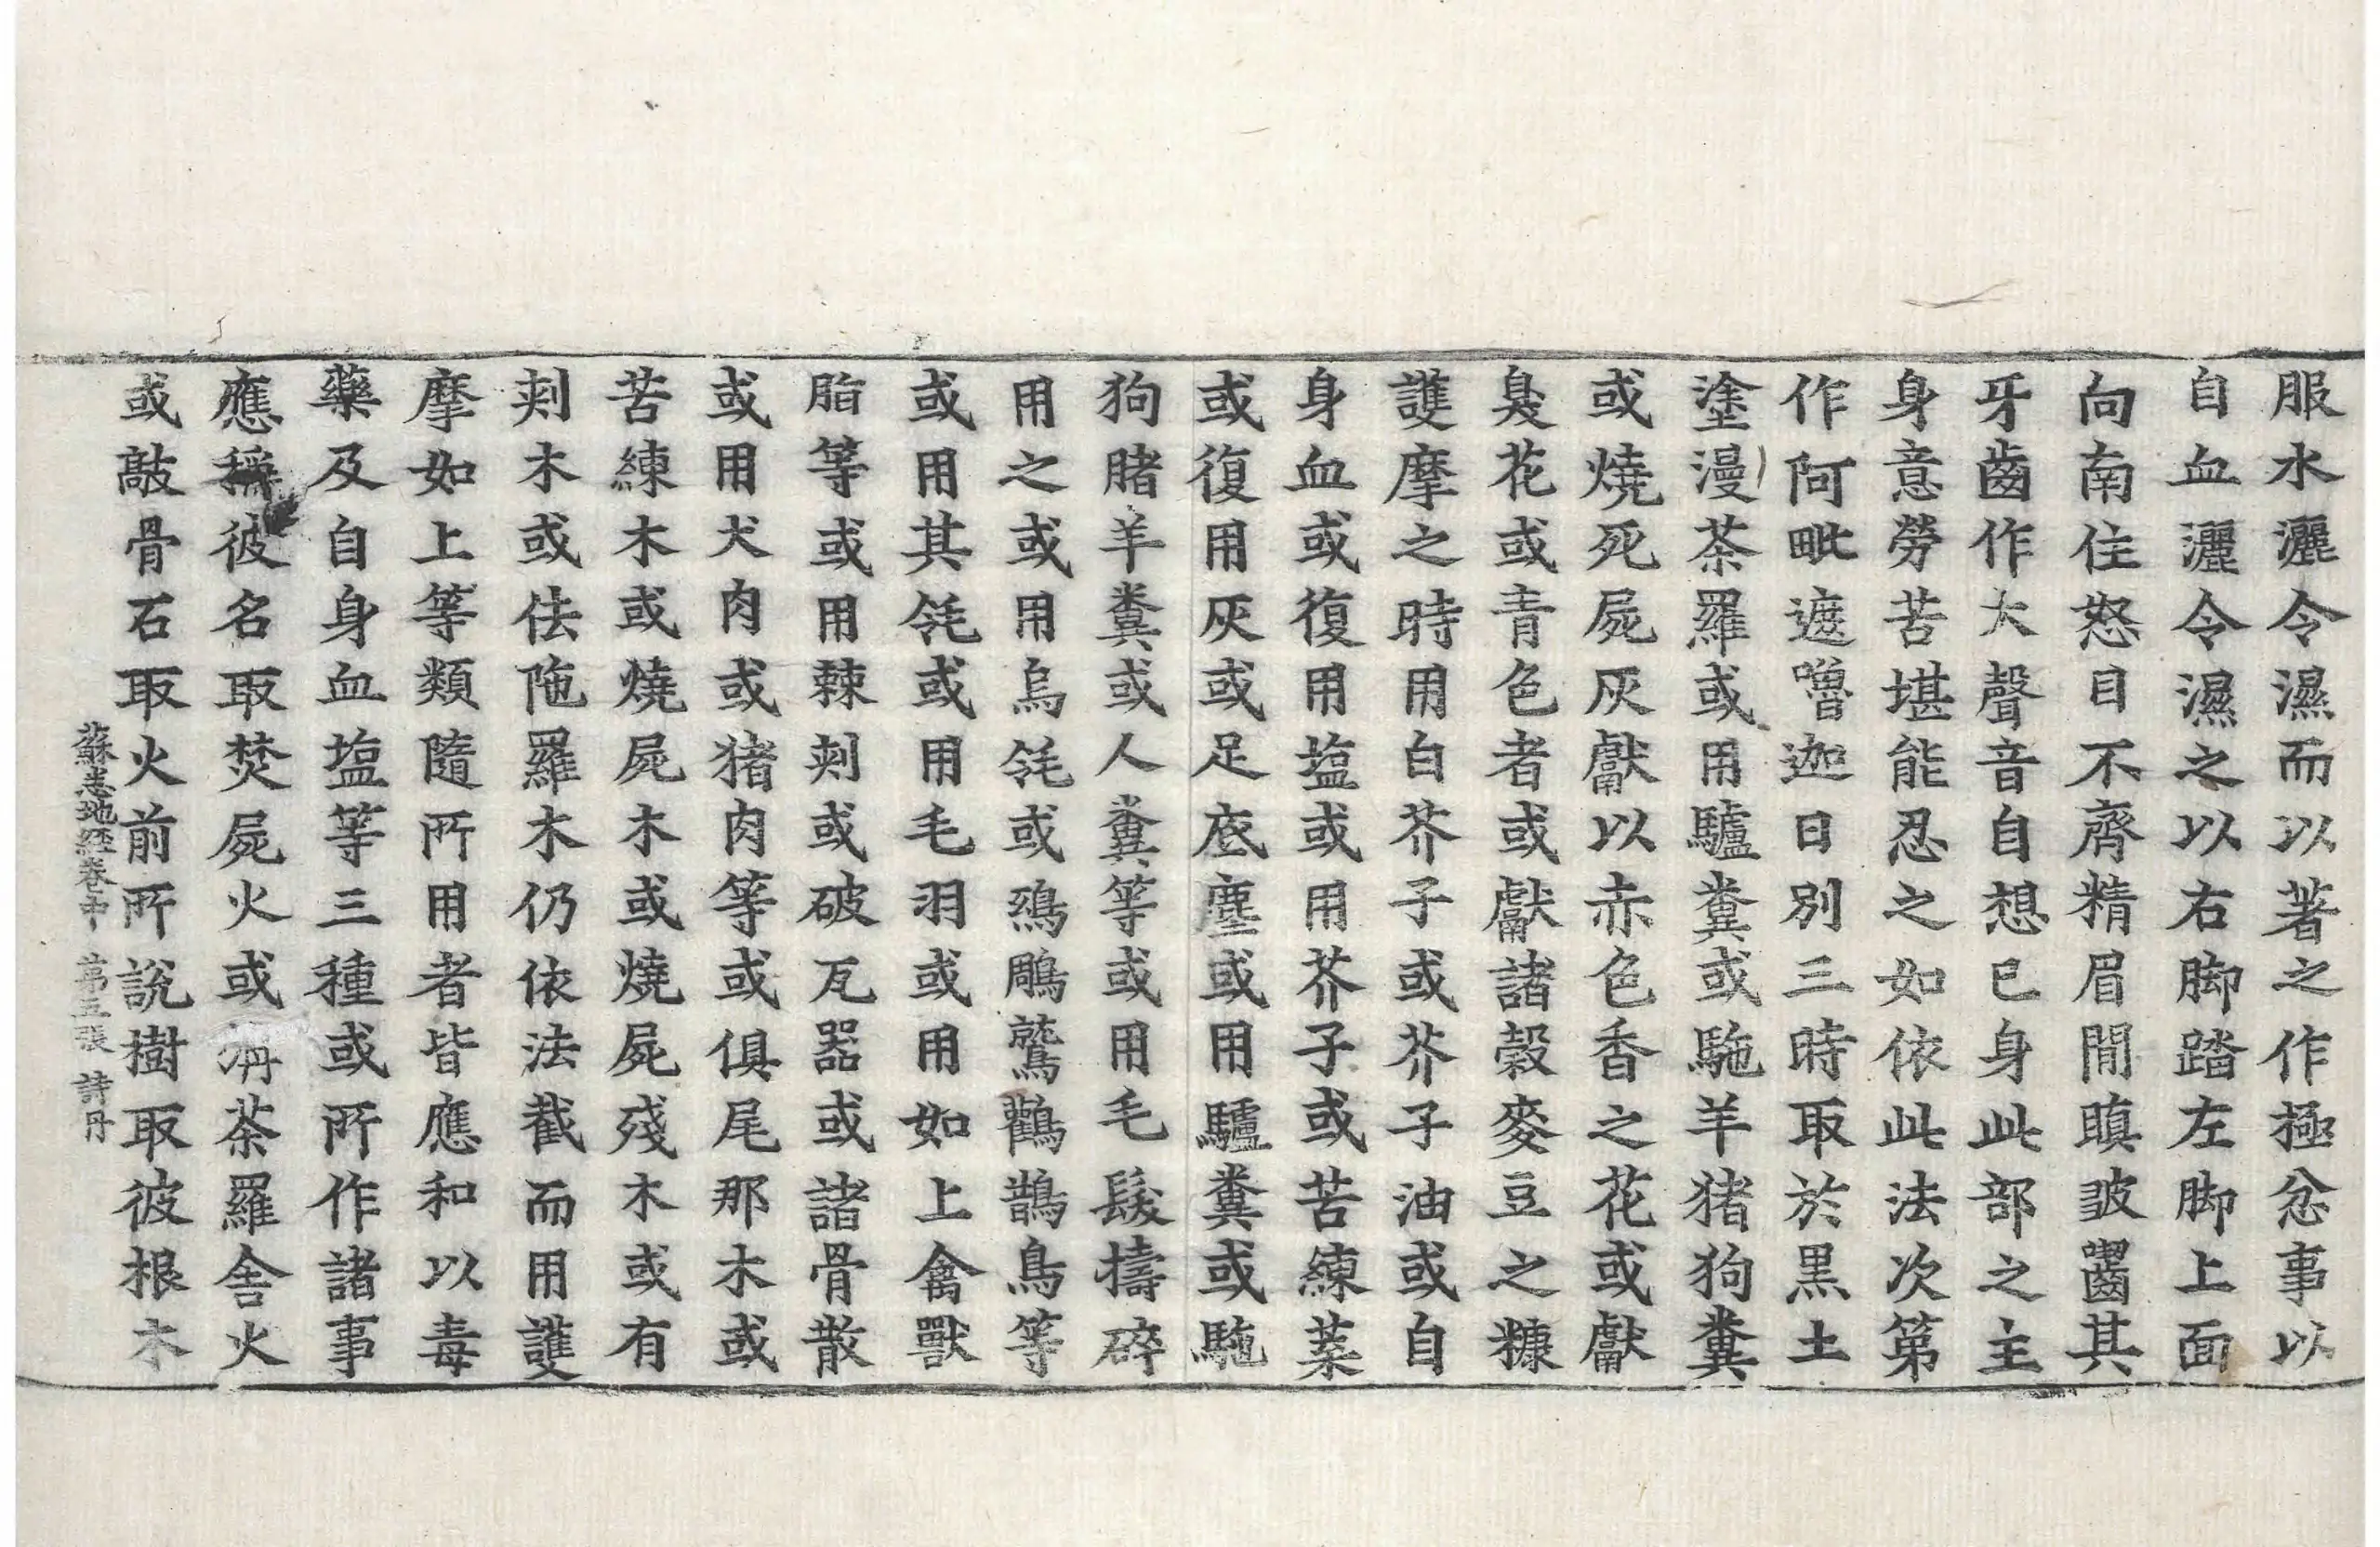 服水灑令濕而以著之作極忿事以
自血灑令濕之以右脚踏左脚上面
向南住怒目不齊精眉間瞋皺齧其
牙齒作大聲音自想已身此部之主
身意勞苦堪能忍之如依此法次第
作阿毗遮嚕迦日別三時取於黒土
塗漫荼羅或用驢糞或駞羊猪狗糞
或燒死屍灰獻以赤色香之花或獻
臭花或青色者或獻諸穀麥豆之糠
護摩之時用白芥子或芥子油或自
身血或復用塩或用芥子或苦練葉
或復用灰或足底塵或用驢糞或駞
狗賭羊糞或人糞等或用毛髮擣碎
用之或用烏毨或鵄鵰鷲鸛鵲鳥等
或用其毨或用毛羽或用如上禽獸
脂等或用棘刾或破瓦器或諸骨散
或用犬肉或猪肉等或俱尾那木或
苦練木或燒屍木或燒屍殘木或有
刾木或佉陁羅木仍依法截而用護
摩如上等類隨所用者皆應和以毒
藥及自身血塩等三種或所作諸事
應稱彼名取焚屍火或旃荼羅舍火
或敲骨石取火前所說樹取彼根木
蘇悉地經卷中 第五張 詩丹